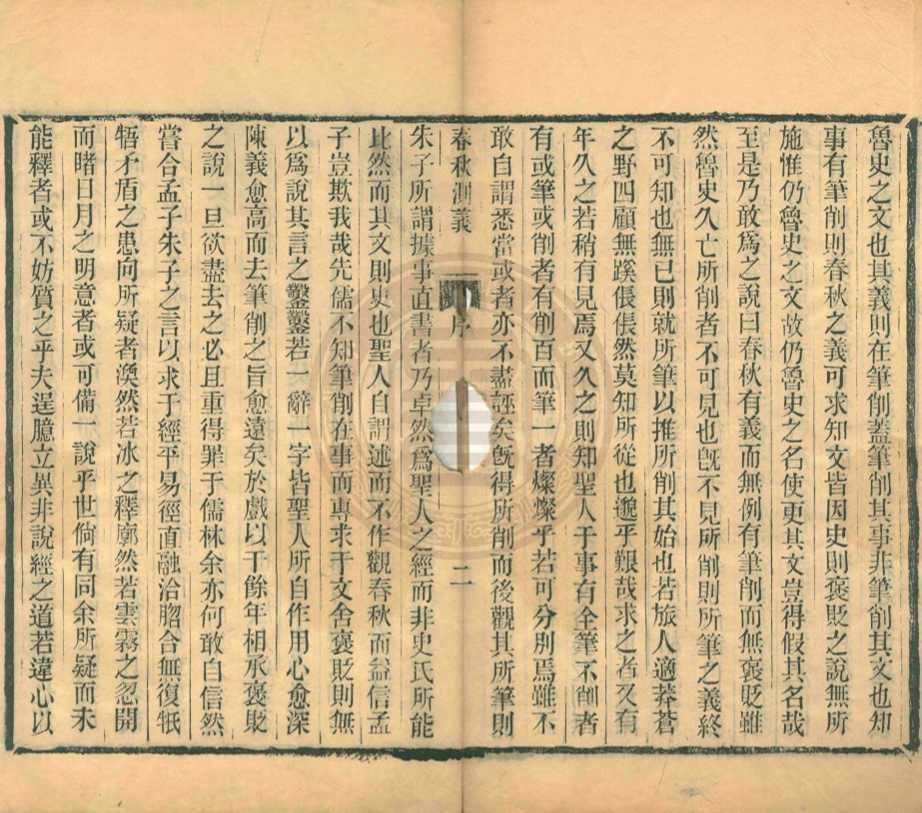 魯史之文也其義則在筆削蓋筆削其事非筆削其文也知
事有筆削則春秋之義可求知文皆因史則褒貶之說無所
施惟仍魯史之文故仍魯史之名使更其文豈得假其名哉
至是乃敢為之說曰春秋有義而無例有筆削而無褒貶雖
然魯史久亡所削者不可見也旣不見所削則所筆之義終
不可知也無已則就所筆以推所削其始也若旅人適莽蒼
之野四顧無蹊倀倀然莫知所從也邈乎艱哉求之者又有
年久之若稍有見焉又久之則知聖人于事有全筆不削者
有或筆或削者有削百而筆一者燦燦乎若可分別焉雖不
敢自謂悉當或者亦不盡誣矣旣得所削而後觀其所筆則
春秋測義
序
二
朱子所謂據事直書者乃卓然爲聖人之經而非史氏所能
比然而其文則史也聖人自謂述而不作觀春秋而益信孟
子豈欺我哉先儒不知筆削在事而專求于文舍褒貶則無
以爲說其言之鑿鑿若一辭一字皆聖人所自作用心愈深
陳義愈高而去筆削之旨愈遠矣於戲以千餘年相承褒貶
之說一旦欲盡去之必且重得罪于儒林余亦何敢自信然
嘗合孟子朱子之言以求于經平易徑直融洽脗合無復牴
牾矛盾之患向所疑者渙然若冰之釋廓然若雲霧之忽開
而睹日月之明意者或可備一說乎世倘有同余所疑而未
能釋者或不妨質之乎夫逞臆立異非說經之道若違心以